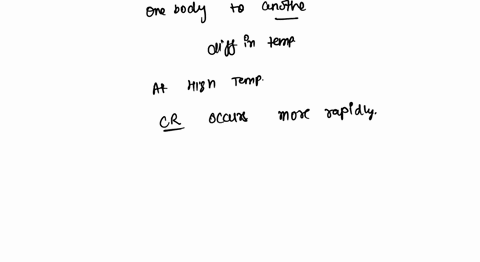 one body to anothe
diff in temp
At High Temp.
CR occurs more rapidly.